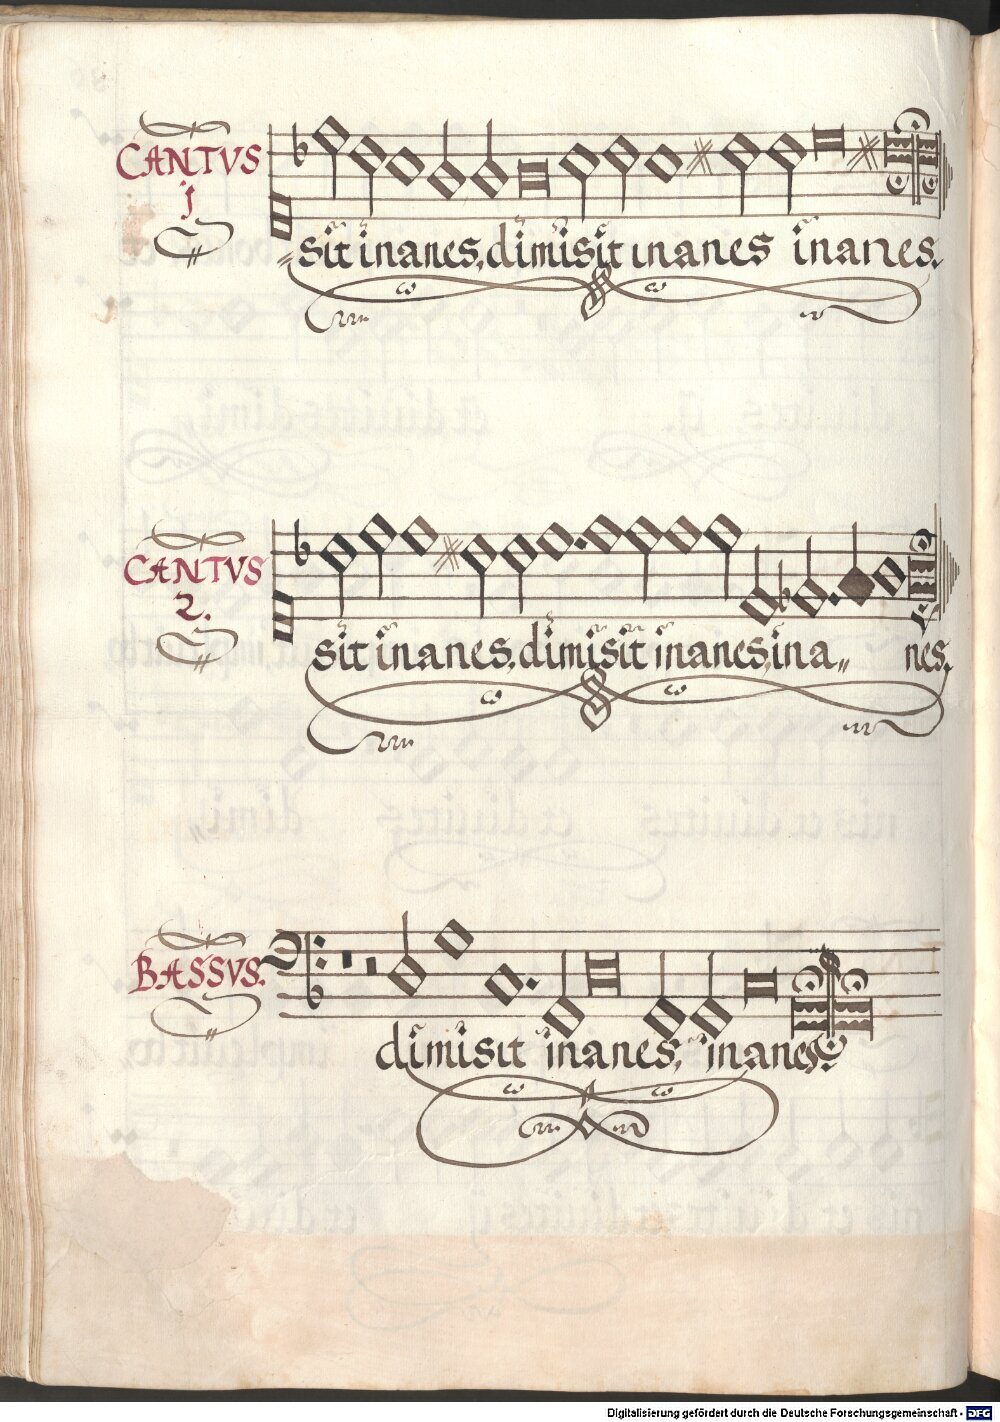 CANTVS
1
sit inanes, dimisit inanes inanes.
CANTVS
2.
sit inanes, dimisit inanes, ina„ nes.
BASSVS.
dimisit inanes, inanes.
Digitalisierung gefördert durch die Deutsche Forschungsgemeinschaft - DFG